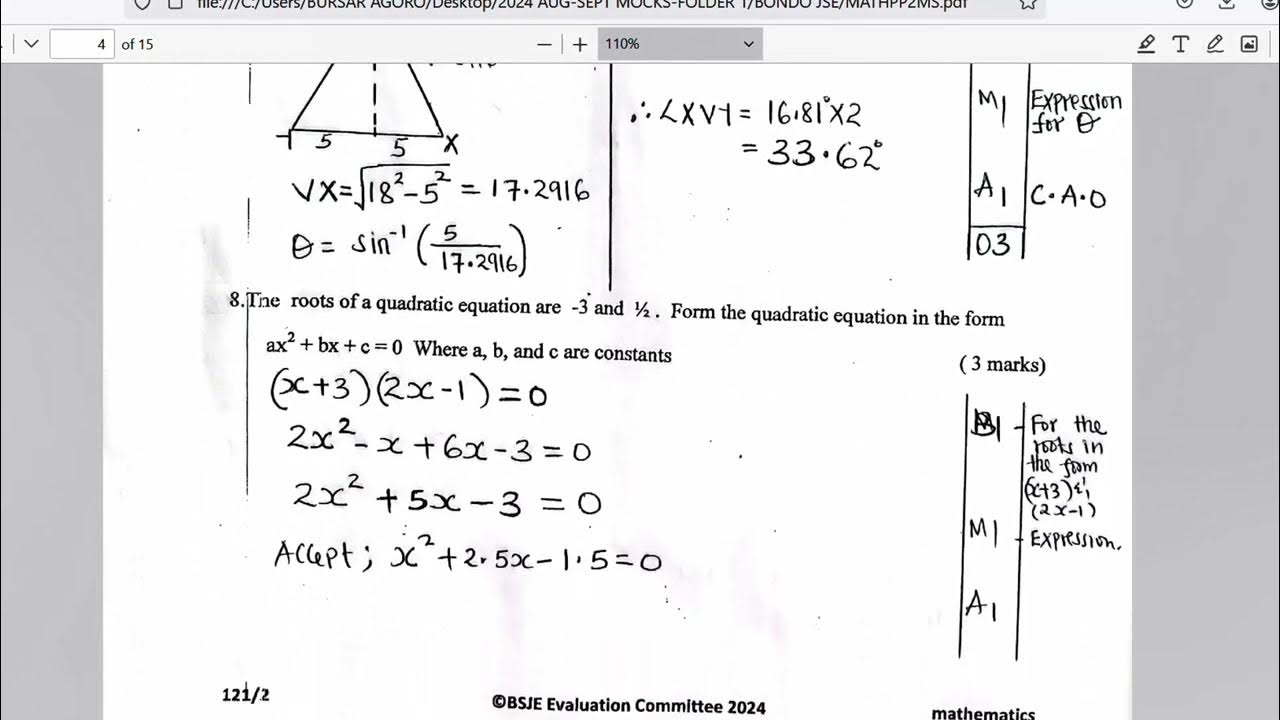 file:///C:/Users/BURSAR AGORO/Desktop/2024 AUG-SEPT MOCKS-FOLDER 1/BONDO JSE/MATHPP2MS.pdf
4 of 15
110%
5 5 X
VX=√18²-5² = 17.2916
θ = sin⁻¹ (5/17.2916)
∴ ∠XVY = 16.81°X2
= 33.62°
M1 Expression for θ
A1 C.A.O
03
8.The roots of a quadratic equation are -3 and ½. Form the quadratic equation in the form
ax² + bx + c = 0 Where a, b, and c are constants
(3 marks)
(x+3)(2x-1) = 0
2x² - x + 6x - 3 = 0
2x² + 5x - 3 = 0
Accept; x² + 2.5x - 1.5 = 0
B1 - For the
roots in
the form
(x+3) &
(2x-1)
M1 - Expression.
A1
121/2
©BSJE Evaluation Committee 2024
mathematics